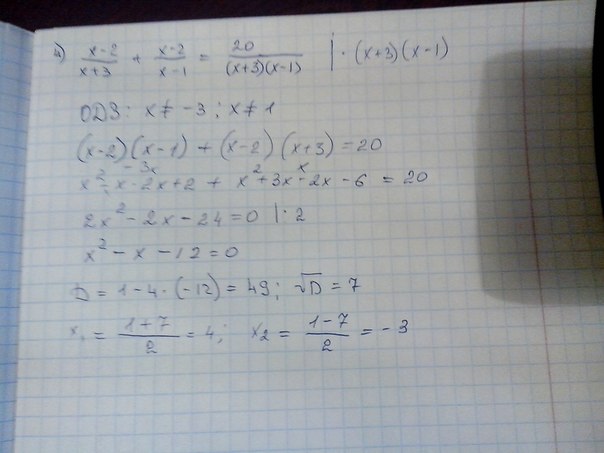 4) (x-2)/(x+3) + (x-2)/(x-1) = 20/((x+3)(x-1)) | · (x+3)(x-1)
ОДЗ: x ≠ -3; x ≠ 1
(x-2)(x-1) + (x-2)(x+3) = 20
- 3x x
x² - x - 2x + 2 + x² + 3x - 2x - 6 = 20
2x² - 2x - 24 = 0 | : 2
x² - x - 12 = 0
D = 1 - 4 · (-12) = 49; √D = 7
x₁ = (1+7)/2 = 4; x₂ = (1-7)/2 = -3